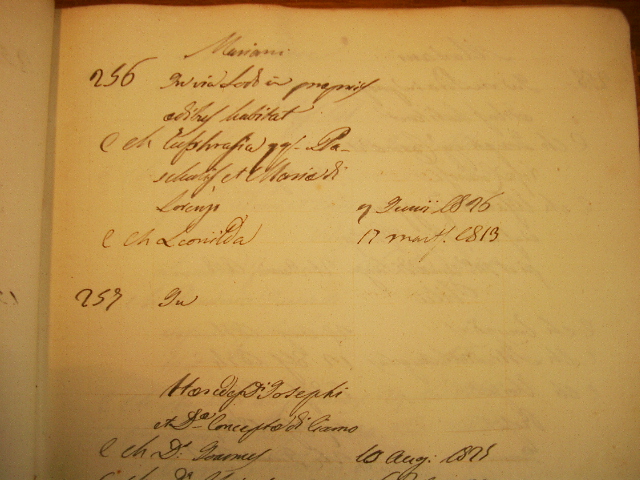 Mariani
256 In via Sodu in propriis
ædibus habitat
C Ch Euphrasia qq. Pa-
schalis et Maria di
Lorenzo 9 Junii 1826
C Ch Leonilda 17 mart. 1813
257 In
Hæredes Di Josephi
et Dæ Conceptæ di Ciamo
C Ch Ds. Joannes 10 Aug. 1825